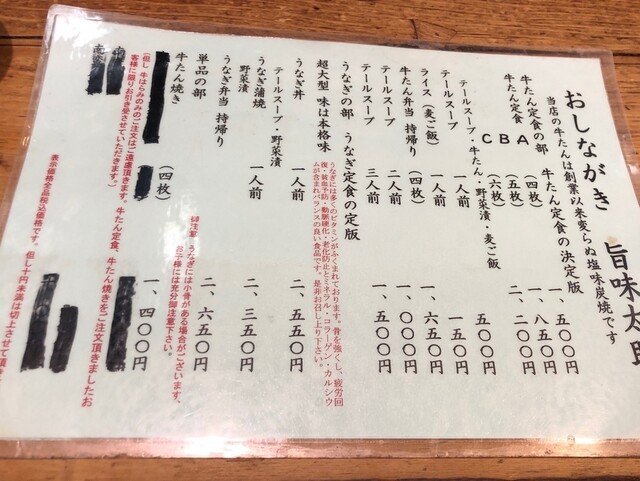 おしながき 旨味太郎
当店の牛たんは創業以来変らぬ塩味炭焼です
牛たん定食の部 牛たん定食の決定版
牛たん定食 A (四枚) 一、五〇〇円
B (五枚) 一、八五〇円
C (六枚) 二、二〇〇円
テールスープ・牛たん・野菜漬・麦ご飯
テールスープ 一人前 五〇〇円
ライス(麦ご飯) 一人前 一五〇円
牛たん弁当 持帰り (四枚) 一、六五〇円
テールスープ 二人前 一、〇〇〇円
テールスープ 三人前 一、五〇〇円
うなぎの部 うなぎ定食の定版
超大型 味は本格味
うなぎには多くのビタミンがふくまれております。骨を強くし、疲労回
復・貧血予防・動脈硬化・老化防止とミネラル・コラーゲン・カルシウ
ムが含まれバランスの良い食品です。是非お召し上り下さい。
うなぎ丼 一人前 二、五五〇円
テールスープ・野菜漬
うなぎ蒲焼 一人前 二、三五〇円
野菜漬
うなぎ弁当 持帰り 二、六五〇円
御注意 うなぎには小骨がある場合がございます。
お子様には充分御注意下さい。
単品の部
牛たん焼き (四枚) 一、四〇〇円
(但し 牛はらみのみのご注文はご遠慮頂きます。牛たん定食、牛たん焼きをご注文頂きましたお
客様に限りお引き受させていただきます。)
表示価格全品税込価格です。但し十円未満は切上させて頂